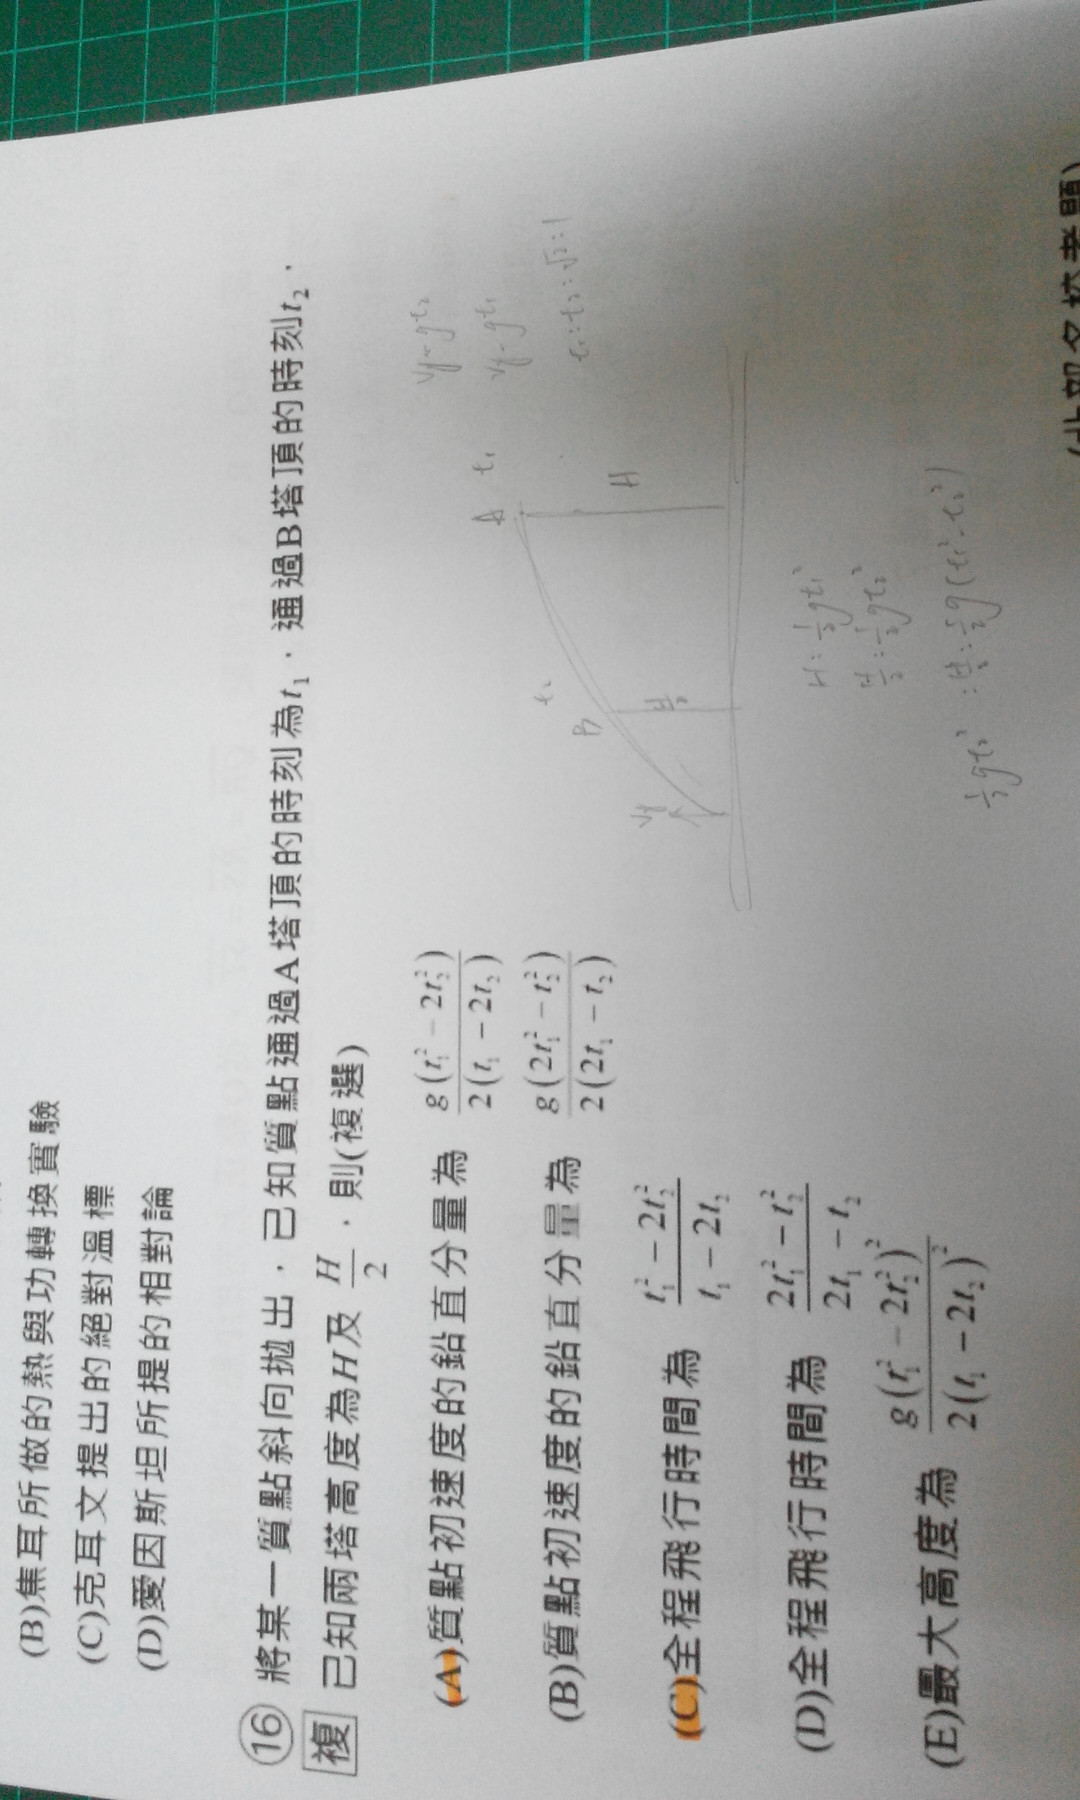 (B)焦耳所做的熱與功轉換實驗
(C)克耳文提出的絕對溫標
(D)愛因斯坦所提的相對論
⑯ 將某一質點斜向拋出，已知質點通過A塔頂的時刻為t₁，通過B塔頂的時刻t₂，
複 已知兩塔高度為H及 H/2，則(複選)
(A)質點初速度的鉛直分量為 g(t₁²－2t₂²)/2(t₁－2t₂)
(B)質點初速度的鉛直分量為 g(2t₁²－t₂²)/2(2t₁－t₂)
(C)全程飛行時間為 t₁²－2t₂²/t₁－2t₂
(D)全程飛行時間為 2t₁²－t₂²/2t₁－t₂
(E)最大高度為 g(t₁²－2t₂²)²/2(t₁－2t₂)²
Vy=gt₂
Vy=gt₁
t₁:t₂=√2:1
A t₁
H
t₂
B
H/2
Vy
H=½gt₁²
H/2=½gt₂²